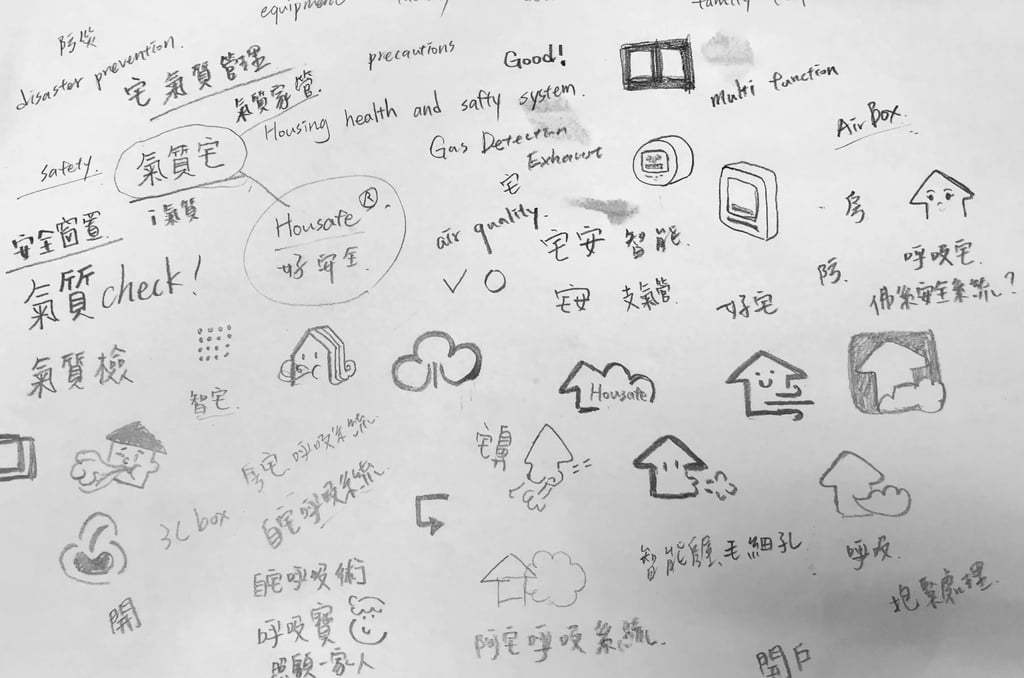 equipment
防災
disaster prevention.
宅氣質管理
氣質家管.
precautions
Good!
Housing health and safty system.
multi function
Air Box.
safety.
氣質宅
Gas Detection
Exhaust
宅
安全窗置
i氣質
Housafe Ⓡ.
好安全.
air quality.
宅安 智能.
房
呼吸宅.
氣質check!
支氣管.
好宅
防.
佛系安全系統?
氣質檢
智宅.
Housafe
房宅呼吸系統.
宅鼻
3C box
自宅呼吸系統.
智能屋毛細孔
呼吸.
自宅呼吸術
開
呼吸寶
阿宅呼吸系統.
照顧一家人
開戶